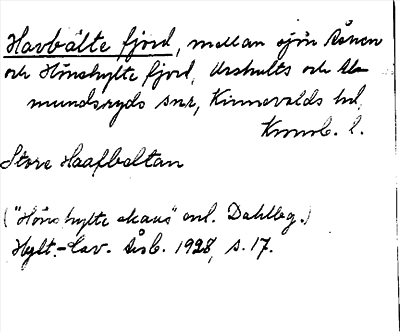 Havbälte fjord, mellan sjön Åsnen
och Hönshylte fjord, Urshults och Al-
mundsryds snr, Kinnevalds hd,
Kronb. l.
Store Haafbaltan
("Hönshylte skans" enl. Dahlbg.)
Hylt.-Cav. Årsb. 1928, s. 17.